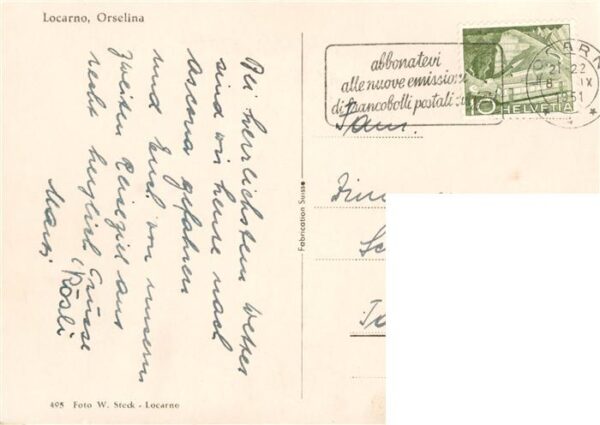 Locarno, Orselina
Bei herrlichstem Wetter
sind wir heute nach
Ascona gefahren
und Euch von unserm
zweiten Reiseziel aus
recht herzlich Grüsse
Rösli
495 Foto W. Steck - Locarno
Fabrication Suisse
abbonatevi
alle nuove emissioni
di francobolli postali
10 HELVETIA
Fam.